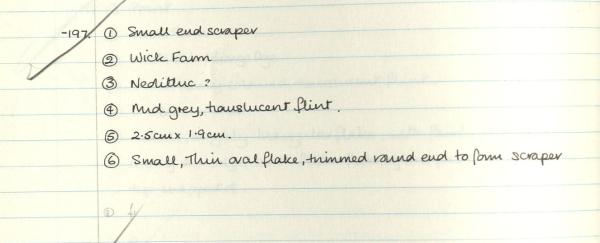 -197. ① Small end scraper
② Wick Farm
③ Neolithic ?
④ Mid grey, translucent flint.
⑤ 2.5cm x 1.9cm.
⑥ Small, Thin oval flake, trimmed round end to form scraper